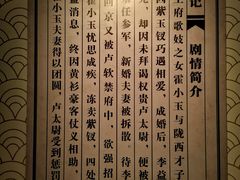 记
剧情简介
王府歌妓之女霍小玉与陇西才子
紫玉钗巧遇相爱，成婚后，李益
元，却因未拜谒权贵卢太尉，便被
任参军，新婚夫妻被拆散。待李
回京又被卢软禁府中，欲强招
霍小玉忧思成疾，冻卖紫钗，四处
益消息，终因黄衫豪客仗义相助，
小玉夫妻得以团圆，卢太尉受到惩罚